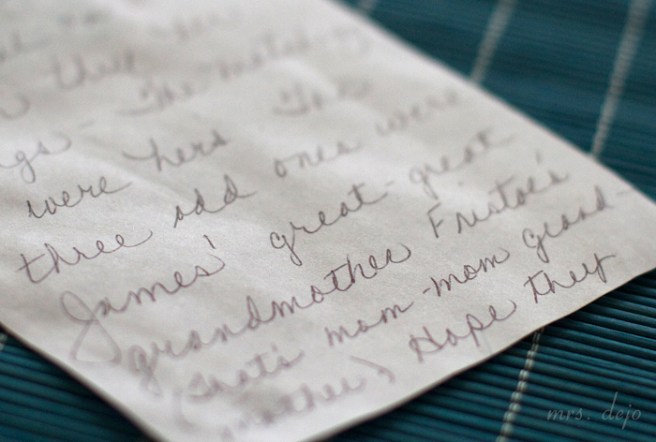 they
The matching
were hers The
three odd ones were
James' great-great
grandmother Fristoe's
(that's mom-mom grand-
mother) Hope they
mrs. dejo